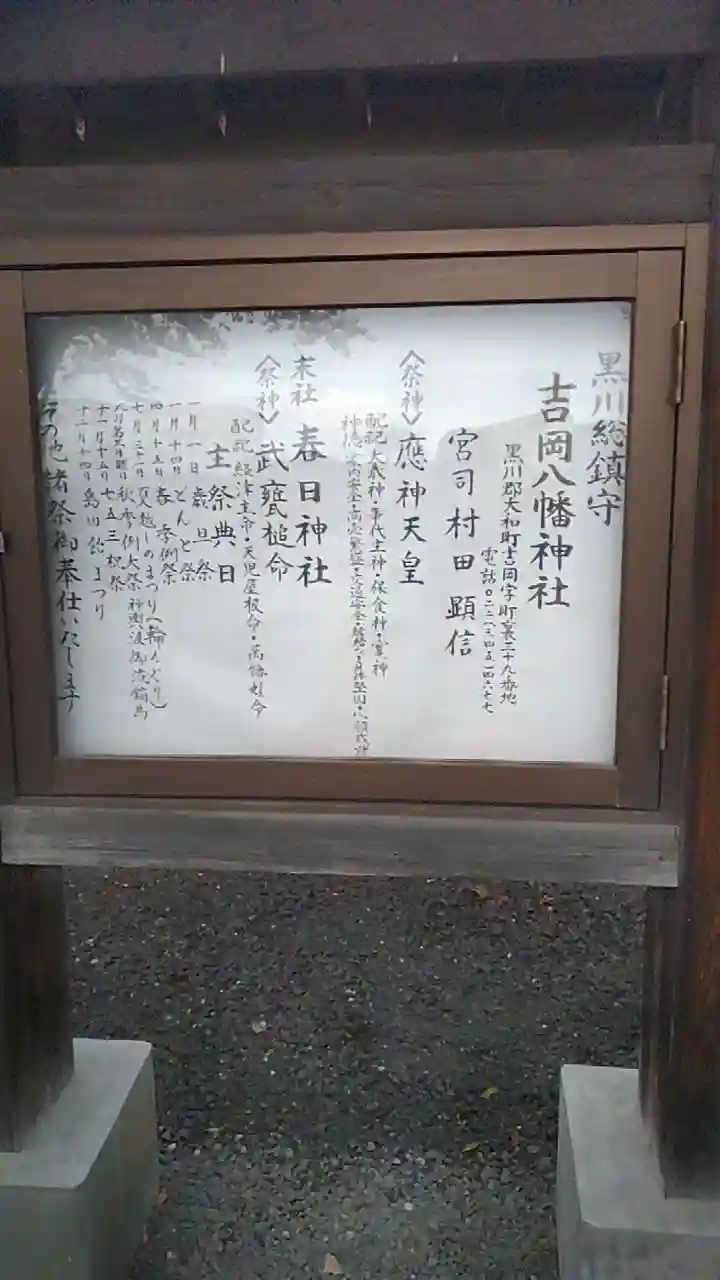 黒川総鎮守
吉岡八幡神社
黒川郡大和町吉岡字町裏三十九番地
電話〇二二(三四五)四六七七
宮司 村田 顕信
〈祭神〉應神天皇
配祀 大歳神・事代主神・保食神・雷神
神徳 家内安全・商売繁盛・交通安全・
末社 春日神社
〈祭神〉武甕槌命
配祀 経津主命・天児屋根命・萬幡姫命
主祭典日
一月一日 歳旦祭
一月十四日 どんと祭
四月十五日 春季例祭
七月三十一日 夏越しのまつり(輪くぐり)
秋季例大祭 神輿渡御流鏑馬
十一月十五日 七五三祝祭
十二月十四日 島田飴まつり
その他諸祭御奉仕いたします